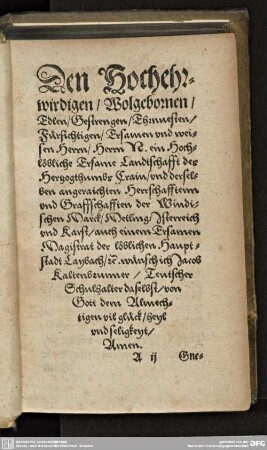 Den Hochehr-
wirdigen/ Wolgebornen/
Edlen/ Gestrengen/ Ehrnuesten/
Fürsichtigen/ Ersamen vnd wei-
sen Herrn/ Herrn N. ein Hoch-
löbliche Ersame Landtschafft des
Hertzogthumbs Crain/ vnd dersel-
ben angeraichten Herschafftern
vnd Graffschafften der Windi-
schen Marck/ Metling/ Isterreich
vnd Karst/ auch einem Ersamen
Magistrat der löblichen Haupt-
stadt Laybach/ ꝛc. wünsch ich Jacob
Kaltenbrunner/ Teutscher
Schulhalter daselbst/ von
Gott dem Almech-
tigen vil glück/ heyl
vnd seligkeyt/
Amen.
A ij Gne-